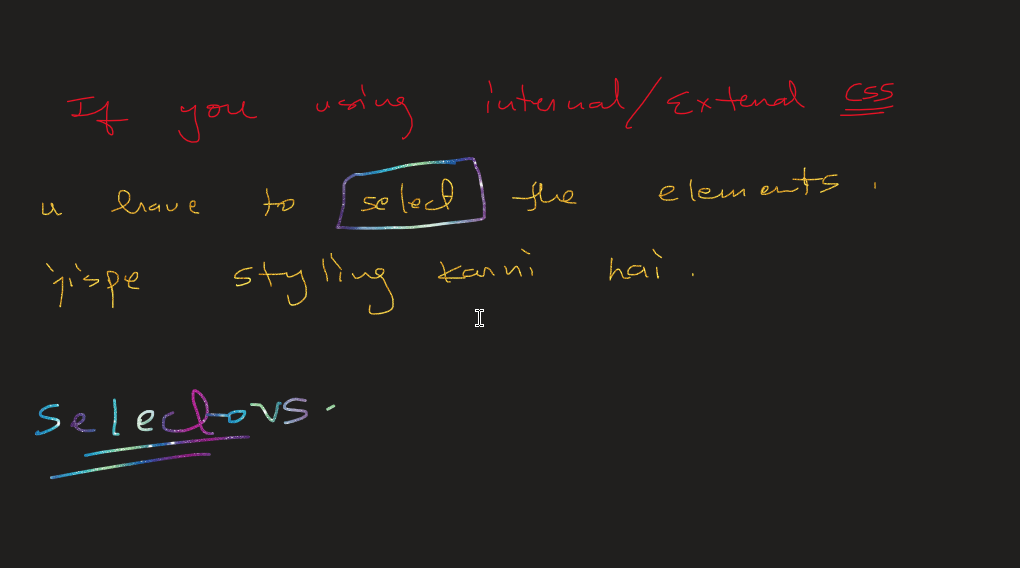 If you using internal/External CSS
u have to select the elements.
jispe styling karni hai.
Selectors.